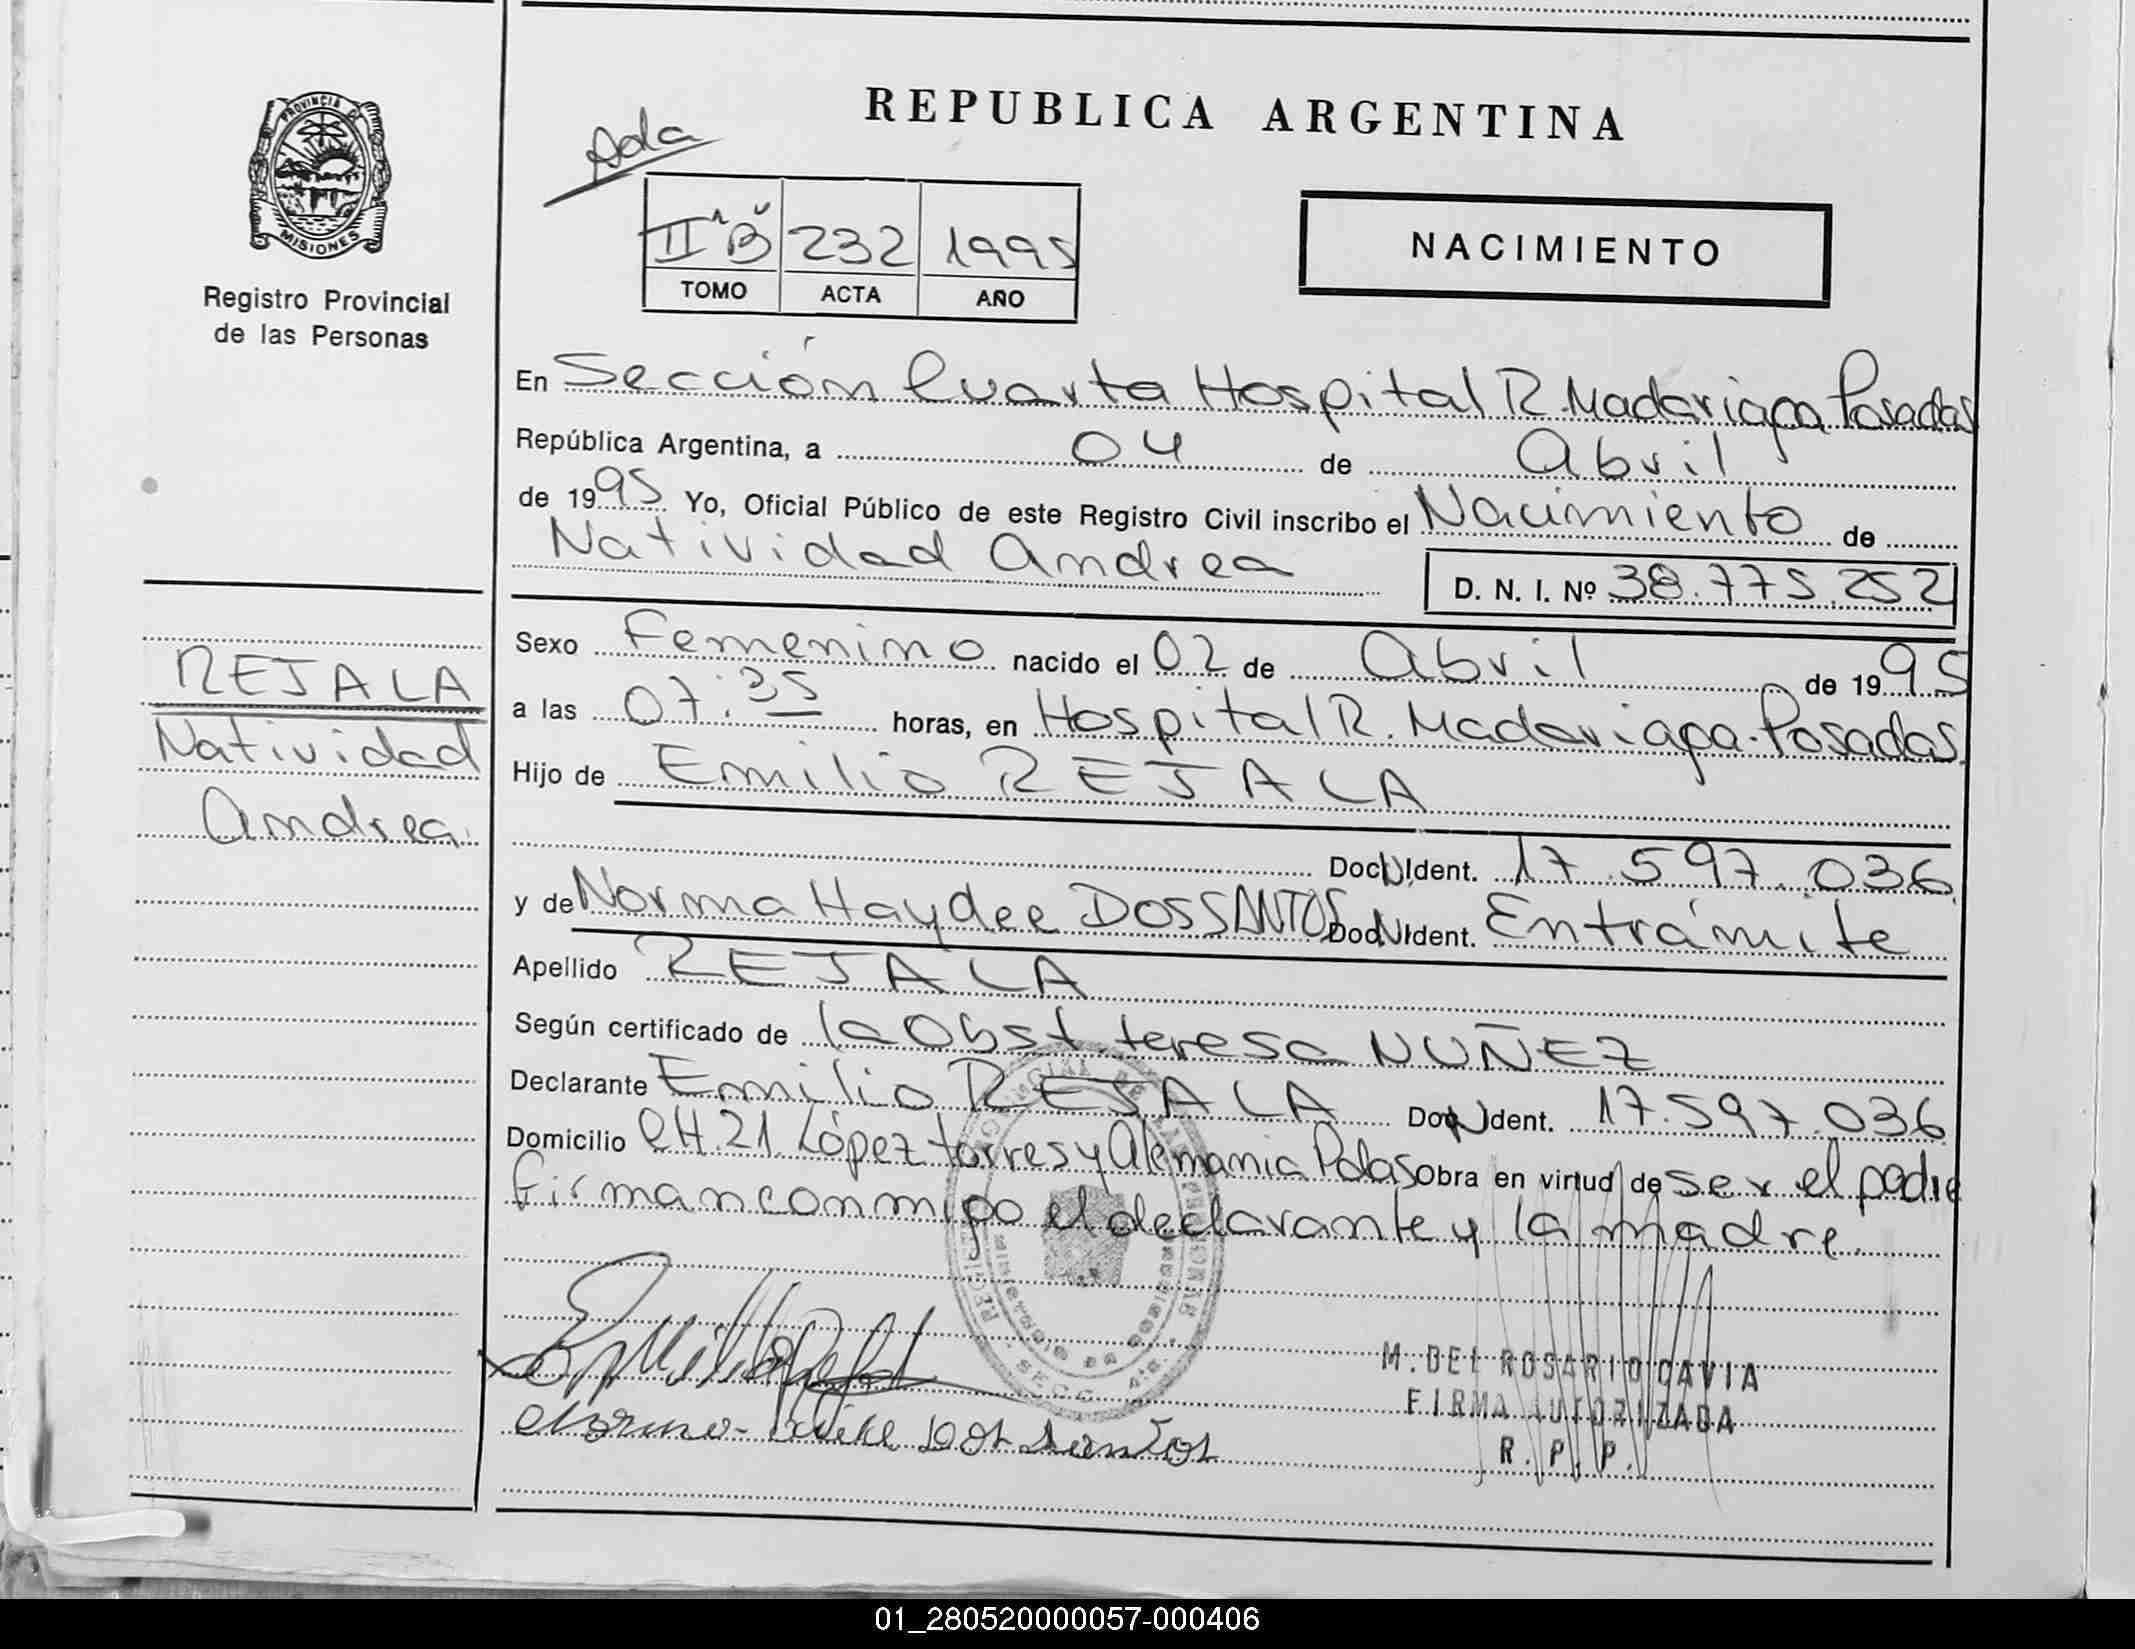 REPUBLICA ARGENTINA
Ada
PROVINCIA DE
MISIONES
Registro Provincial
de las Personas
II "B" 232 1995
TOMO ACTA AÑO
NACIMIENTO
En Sección Cuarta Hospital R. Madariaga Posadas
República Argentina, a 04 de Abril
de 1995 Yo, Oficial Público de este Registro Civil inscribo el Nacimiento de
Natividad Andrea D. N. I. Nº 38.775.252
Sexo Femenino nacido el 02 de Abril de 1995
a las 07:35 horas, en Hospital R. Madariaga. Posadas.
Hijo de Emilio REJALA
Doc. N. Ident. 17.597.036
y de Norma Haydee DOS SANTOS Doc. N. Ident. En trámite
Apellido REJALA
Según certificado de la Obst. teresa NUÑEZ
Declarante Emilio REJALA Doc. N. Ident. 17.597.036
Domicilio CH.21 López torres y Alemania Pdas Obra en virtud de ser el padre
firman conmigo el declarante y la madre.
REJALA
Natividad
Andrea.
M. DEL ROSARIO CAVIA
FIRMA AUTORIZADA
R. P. P.
Dos Santos
01_280520000057-000406